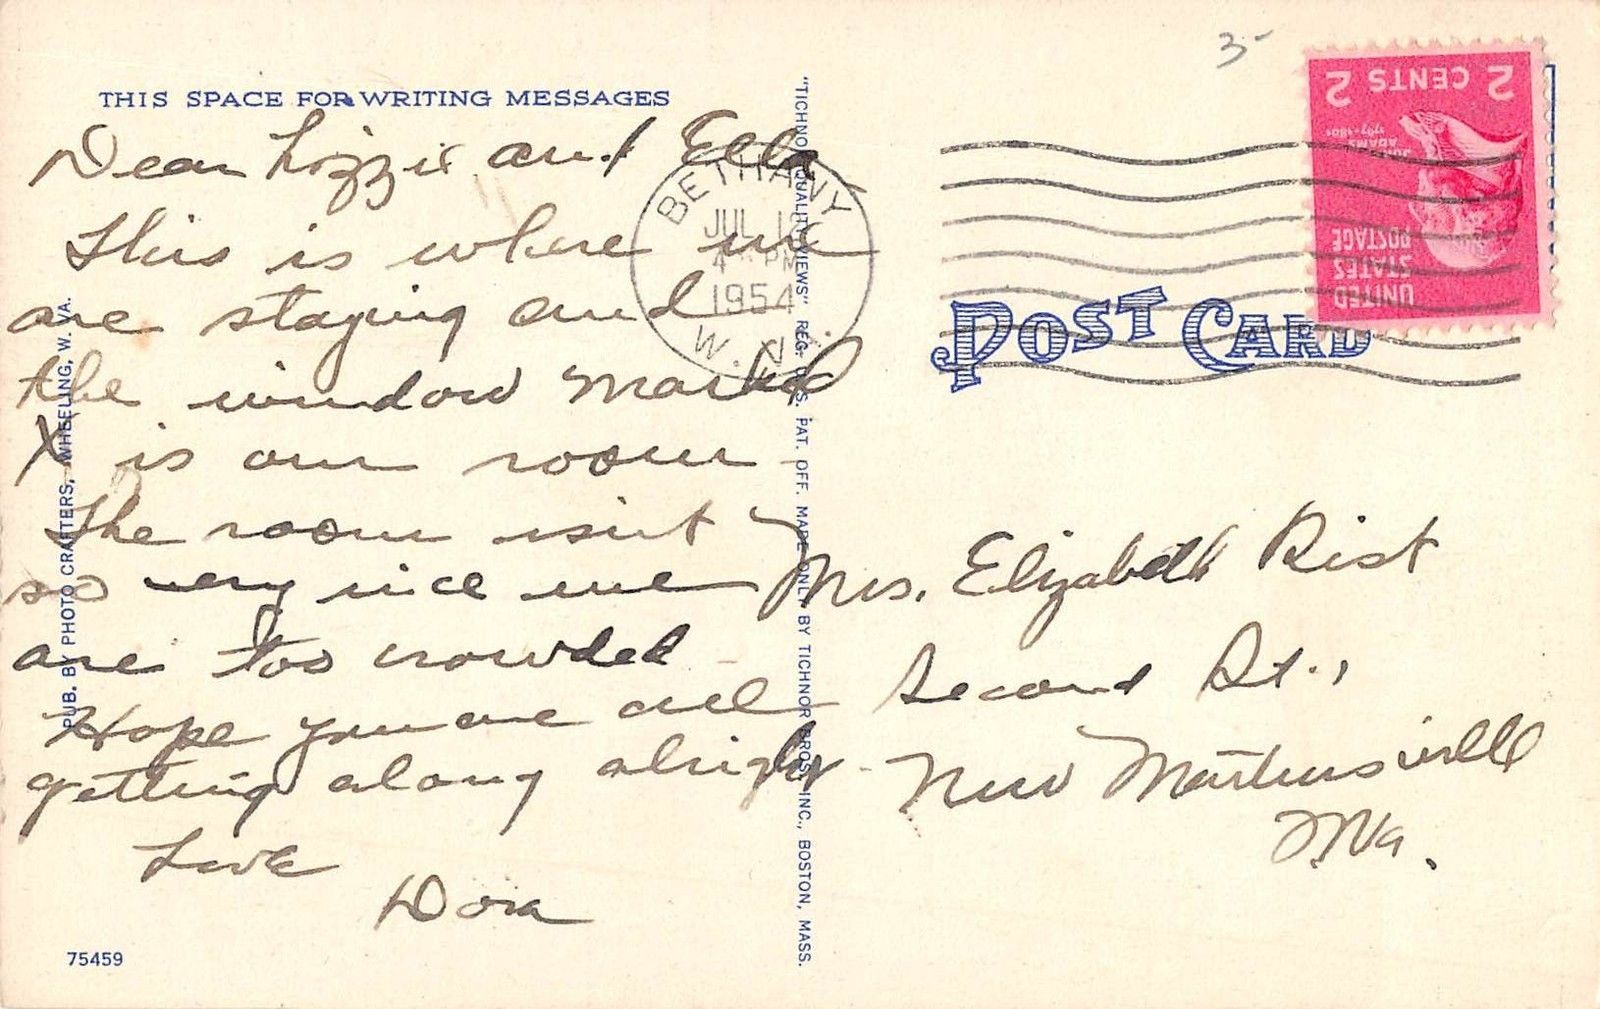 THIS SPACE FOR WRITING MESSAGES
Dear Lizzie and Ella
This is where we
are staying and
the window marked
X is our room
The room isnt
so very nice we
are too crowded
Hope you are all
getting along alright
Love
Dora
75459
PUB. BY PHOTO CRAFTERS, WHEELING, W. VA.
"TICHNOR QUALITY VIEWS" REG. U. S. PAT. OFF. MADE ONLY BY TICHNOR BROS., INC., BOSTON, MASS.
BETHANY
JUL
PM
1954
W. VA.
3-
2 CENTS 2
JOHN
ADAMS
1797-1801
UNITED
STATES
POSTAGE
POST CARD
Mrs. Elizabeth Rist
Second St.,
New Martinsville
WVa.